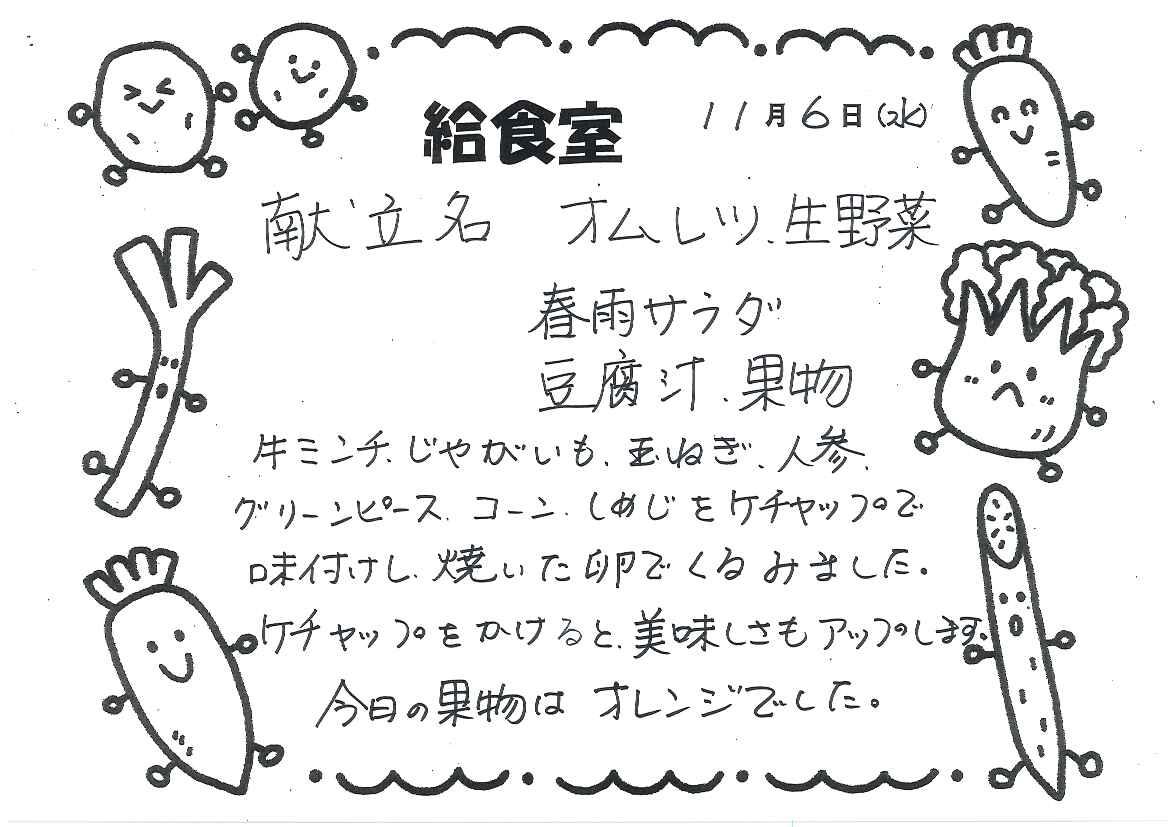 給食室 11月6日(水)
献立名 オムレツ、生野菜
春雨サラダ
豆腐汁、果物
牛ミンチ、じゃがいも、玉ねぎ、人参、
グリーンピース、コーン、しめじをケチャップで
味付けし、焼いた卵でくるみました。
ケチャップをかけると、美味しさもアップします。
今日の果物は オレンジでした。